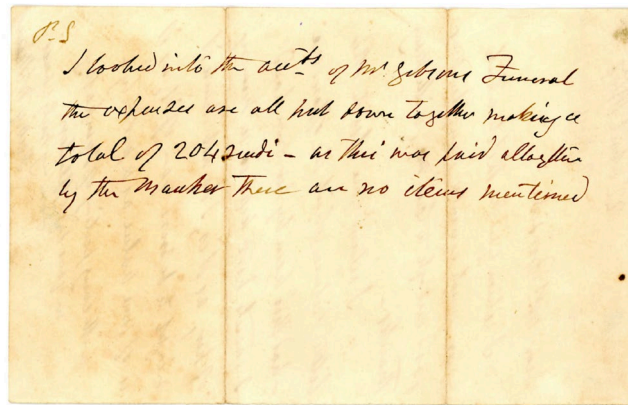 P.S
I looked into the accts of Mr. Gibsons Funeral
the expenses are all put down together making a
total of 204 scudi - as this was paid altogether
by the Banker there are no items mentioned